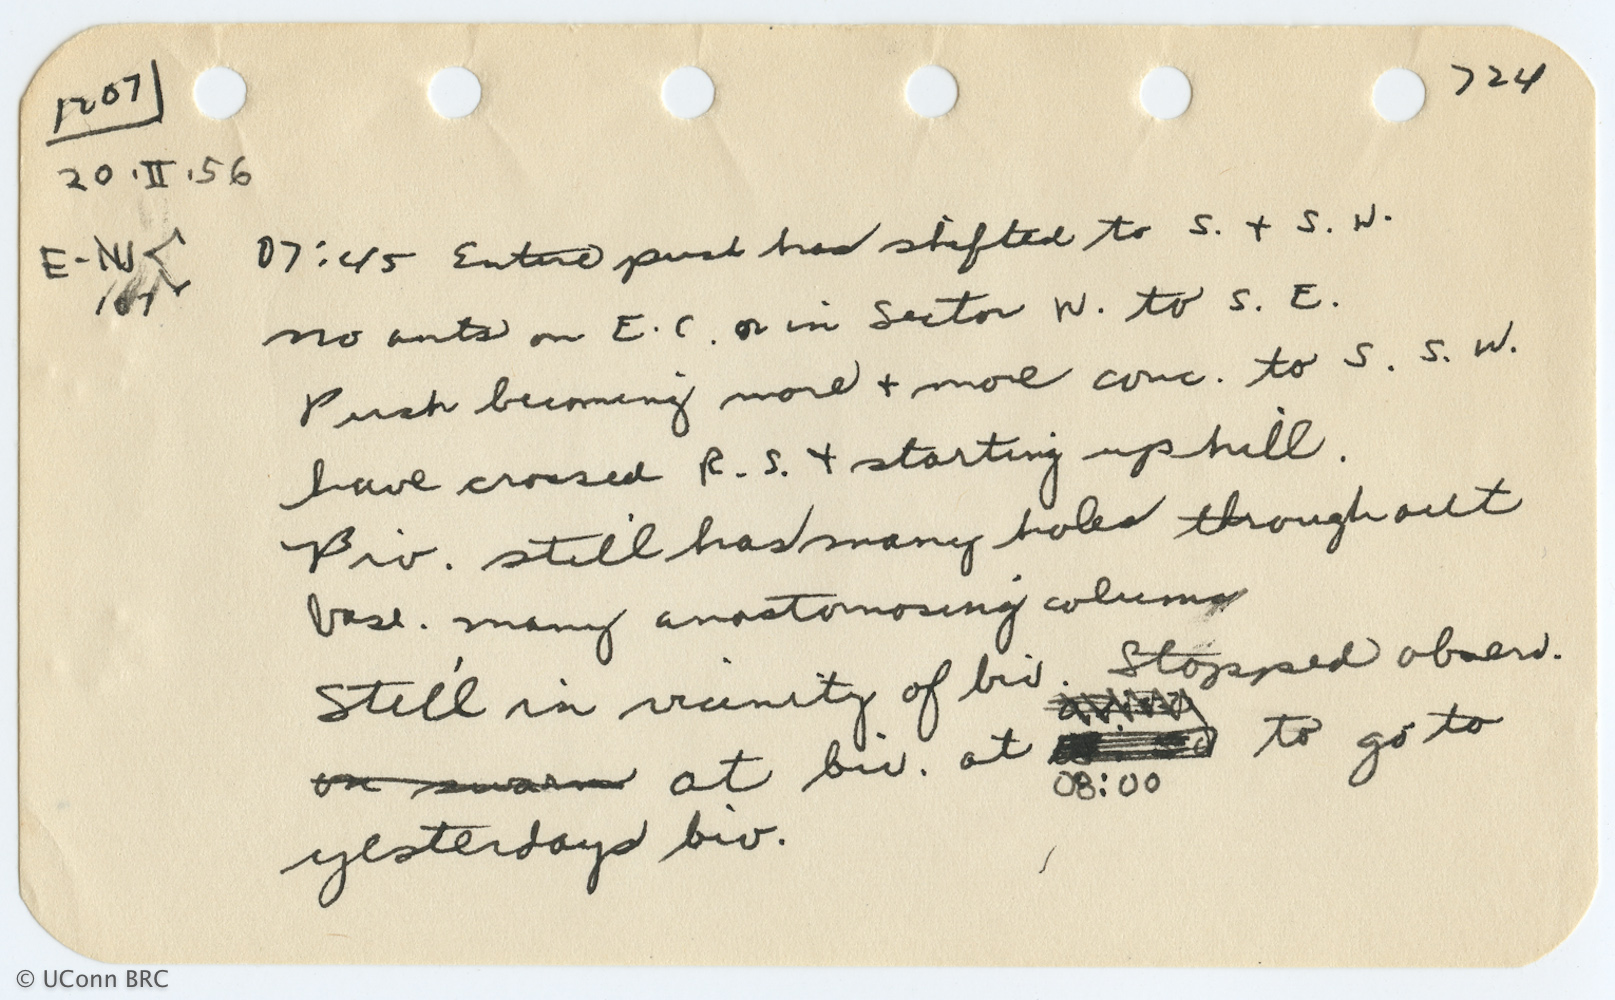 1207
724
20.II.56
E-NW
07:45 Entire push has shifted to S. + S.W.
no ants on E.C. or in Sector N. to S.E.
Push becoming more + more conc. to S.S.W.
have crossed R.S. + starting uphill.
Biv. still has many holes throughout
base. many anastomosing columns
Still in vicinity of biv. Stopped observ.
on swarm at biv. at 08:00 to go to
yesterdays biv.
© UConn BRC